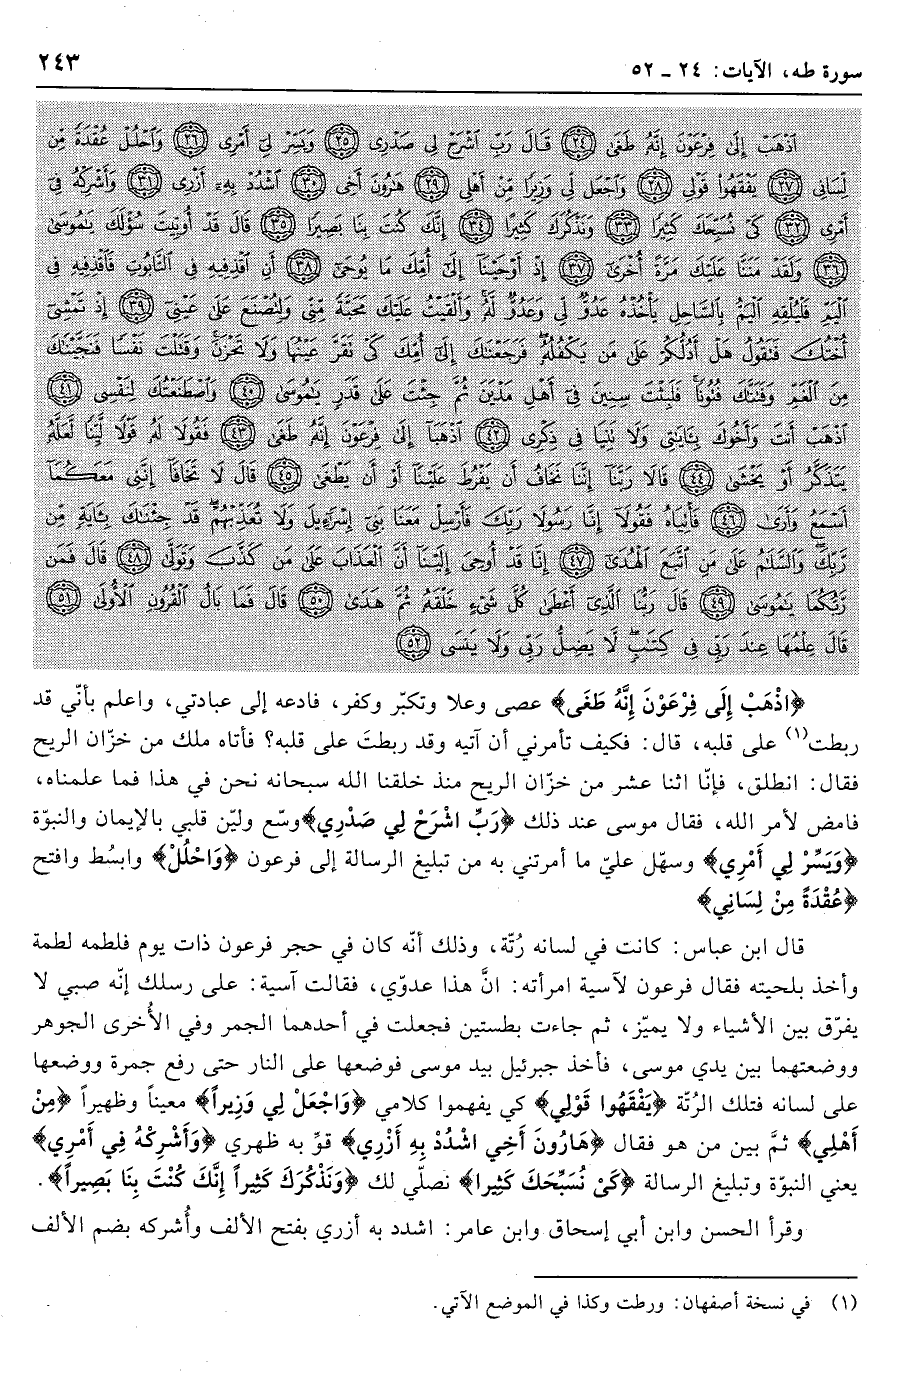 سورة طه، الآيات: ٢٤ ـ ٥٢
٢٤٣
ٱذْهَبْ إِلَىٰ فِرْعَوْنَ إِنَّهُ طَغَىٰ ٢٤ قَالَ رَبِّ ٱشْرَحْ لِي صَدْرِي ٢٥ وَيَسِّرْ لِيٓ أَمْرِي ٢٦ وَٱحْلُلْ عُقْدَةً مِّن
لِّسَانِي ٢٧ يَفْقَهُواْ قَوْلِي ٢٨ وَٱجْعَل لِّي وَزِيرًا مِّنْ أَهْلِي ٢٩ هَٰرُونَ أَخِي ٣٠ ٱشْدُدْ بِهِۦٓ أَزْرِي ٣١ وَأَشْرِكْهُ فِيٓ
أَمْرِي ٣٢ كَيْ نُسَبِّحَكَ كَثِيرًا ٣٣ وَنَذْكُرَكَ كَثِيرًا ٣٤ إِنَّكَ كُنتَ بِنَا بَصِيرًا ٣٥ قَالَ قَدْ أُوتِيتَ سُؤْلَكَ يَٰمُوسَىٰ
٣٦ وَلَقَدْ مَنَنَّا عَلَيْكَ مَرَّةً أُخْرَىٰٓ ٣٧ إِذْ أَوْحَيْنَآ إِلَىٰٓ أُمِّكَ مَا يُوحَىٰٓ ٣٨ أَنِ ٱقْذِفِيهِ فِي ٱلتَّابُوتِ فَٱقْذِفِيهِ فِي
ٱلْيَمِّ فَلْيُلْقِهِ ٱلْيَمُّ بِٱلسَّاحِلِ يَأْخُذْهُ عَدُوٌّ لِّي وَعَدُوٌّ لَّهُۥ وَأَلْقَيْتُ عَلَيْكَ مَحَبَّةً مِّنِّي وَلِتُصْنَعَ عَلَىٰ عَيْنِيٓ ٣٩ إِذْ تَمْشِيٓ
أُخْتُكَ فَتَقُولُ هَلْ أَدُلُّكُمْ عَلَىٰ مَن يَكْفُلُهُۥ فَرَجَعْنَٰكَ إِلَىٰٓ أُمِّكَ كَيْ تَقَرَّ عَيْنُهَا وَلَا تَحْزَنَ وَقَتَلْتَ نَفْسًا فَنَجَّيْنَٰكَ
مِنَ ٱلْغَمِّ وَفَتَنَّٰكَ فُتُونًا فَلَبِثْتَ سِنِينَ فِيٓ أَهْلِ مَدْيَنَ ثُمَّ جِئْتَ عَلَىٰ قَدَرٍ يَٰمُوسَىٰ ٤٠ وَٱصْطَنَعْتُكَ لِنَفْسِي ٤١
ٱذْهَبْ أَنتَ وَأَخُوكَ بِـَٔايَٰتِي وَلَا تَنِيَا فِي ذِكْرِي ٤٢ ٱذْهَبَآ إِلَىٰ فِرْعَوْنَ إِنَّهُ طَغَىٰ ٤٣ فَقُولَا لَهُۥ قَوْلًا لَّيِّنًا لَّعَلَّهُۥ
يَتَذَكَّرُ أَوْ يَخْشَىٰ ٤٤ قَالَا رَبَّنَآ إِنَّنَا نَخَافُ أَن يَفْرُطَ عَلَيْنَآ أَوْ أَن يَطْغَىٰ ٤٥ قَالَ لَا تَخَافَآ إِنَّنِي مَعَكُمَآ
أَسْمَعُ وَأَرَىٰ ٤٦ فَأْتِيَاهُ فَقُولَآ إِنَّا رَسُولَا رَبِّكَ فَأَرْسِلْ مَعَنَا بَنِيٓ إِسْرَٰٓءِيلَ وَلَا تُعَذِّبْهُمْ قَدْ جِئْنَٰكَ بِـَٔايَةٍ مِّن
رَّبِّكَ وَٱلسَّلَٰمُ عَلَىٰ مَنِ ٱتَّبَعَ ٱلْهُدَىٰٓ ٤٧ إِنَّا قَدْ أُوحِيَ إِلَيْنَآ أَنَّ ٱلْعَذَابَ عَلَىٰ مَن كَذَّبَ وَتَوَلَّىٰ ٤٨ قَالَ فَمَن
رَّبُّكُمَا يَٰمُوسَىٰ ٤٩ قَالَ رَبُّنَا ٱلَّذِيٓ أَعْطَىٰ كُلَّ شَيْءٍ خَلْقَهُۥ ثُمَّ هَدَىٰ ٥٠ قَالَ فَمَا بَالُ ٱلْقُرُونِ ٱلْأُولَىٰ ٥١
قَالَ عِلْمُهَا عِندَ رَبِّي فِي كِتَٰبٍ لَّا يَضِلُّ رَبِّي وَلَا يَنسَى ٥٢
﴿اذْهَبْ إِلَى فِرْعَوْنَ إِنَّهُ طَغَى﴾ عصى وعلا وتكبّر وكفر، فادعه إلى عبادتي، واعلم بأنّي قد
ربطت(١) على قلبه، قال: فكيف تأمرني أن آتيه وقد ربطتَ على قلبه؟ فأتاه ملك من خزّان الريح
فقال: انطلق، فإنّا اثنا عشر من خزّان الريح منذ خلقنا الله سبحانه نحن في هذا فما علمناه،
فامض لأمر الله، فقال موسى عند ذلك ﴿رَبِّ اشْرَحْ لِي صَدْرِي﴾ وسّع وليّن قلبي بالإيمان والنبوّة
﴿وَيَسِّرْ لِي أَمْرِي﴾ وسهّل عليّ ما أمرتني به من تبليغ الرسالة إلى فرعون ﴿وَاحْلُلْ﴾ وابسُط وافتح
﴿عُقْدَةً مِنْ لِسَانِي﴾
قال ابن عباس: كانت في لسانه رُتّة، وذلك أنّه كان في حجر فرعون ذات يوم فلطمه لطمة
وأخذ بلحيته فقال فرعون لآسية امرأته: انَّ هذا عدوّي، فقالت آسية: على رسلك إنّه صبي لا
يفرّق بين الأشياء ولا يميّز، ثم جاءت بطستين فجعلت في أحدهما الجمر وفي الأُخرى الجوهر
ووضعتهما بين يدي موسى، فأخذ جبرئيل بيد موسى فوضعها على النار حتى رفع جمرة ووضعها
على لسانه فتلك الرُتّة ﴿يَفْقَهُوا قَوْلِي﴾ كي يفهموا كلامي ﴿وَاجْعَلْ لِي وَزِيراً﴾ معيناً وظهيراً ﴿مِنْ
أَهْلِي﴾ ثمَّ بين من هو فقال ﴿هَارُونَ أَخِي اشْدُدْ بِهِ أَزْرِي﴾ قوِّ به ظهري ﴿وَأَشْرِكْهُ فِي أَمْرِي﴾
يعني النبوّة وتبليغ الرسالة ﴿كَيْ نُسَبِّحَكَ كَثِيرا﴾ نصلّي لك ﴿وَنَذْكُرَكَ كَثِيراً إِنَّكَ كُنْتَ بِنَا بَصِيراً﴾.
وقرأ الحسن وابن أبي إسحاق وابن عامر: اشدد به أزري بفتح الألف وأُشركه بضم الألف
(١) في نسخة أصفهان: ورطت وكذا في الموضع الآتي.